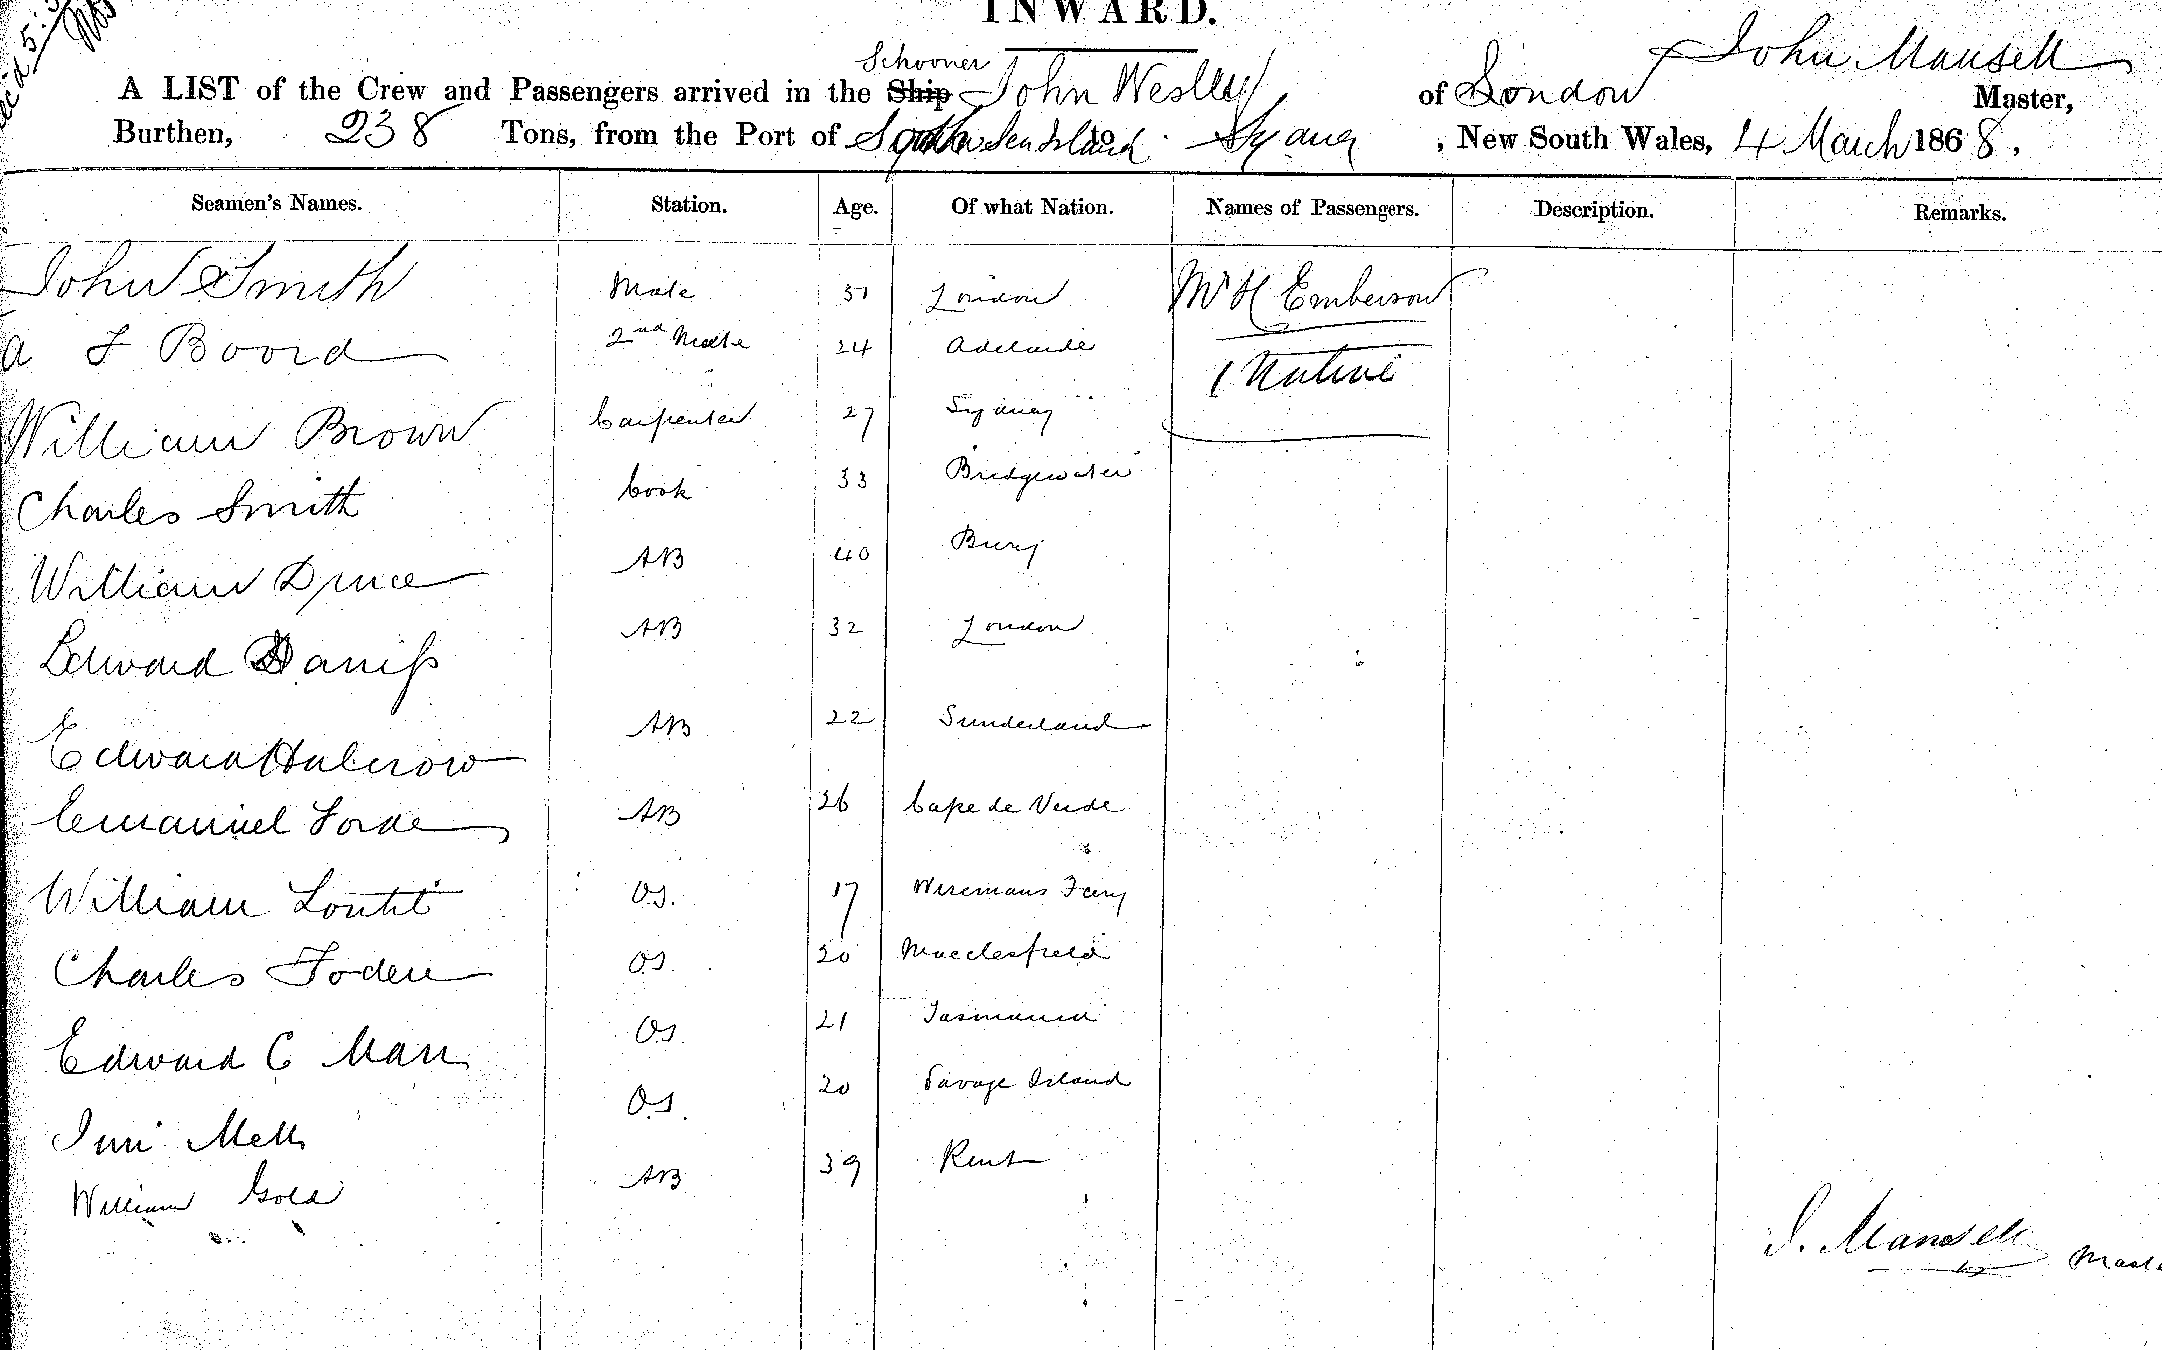 INWARD.
Schooner
John Mansell
A LIST of the Crew and Passengers arrived in the Ship John Wesley of London Master,
Burthen, 238 Tons, from the Port of South Sea Island to Sydney, New South Wales, 4 March 1868.
Seamen's Names. Station. Age. Of what Nation. Names of Passengers. Description. Remarks.
John Smith Mate 31 London Mr H Emberson
A F Boord 2nd Mate 24 Adelaide 1 Native
William Brown Carpenter 27 Sydney
Charles Smith Cook 33 Bridgewater
William Druce AB 40 Bury
Edward AB 32 London
Edward Halcrow AB 22 Sunderland
Emanuel Forde AB 26 Cape de Verde
William Loutit OS. 17 Wisemans Ferry
Charles Foden OS. 20 Macclesfield
Edward C Marr OS 21 Tasmania
OS. 20 Savage Island
William Gold AB 39 Kent
J. Mansell